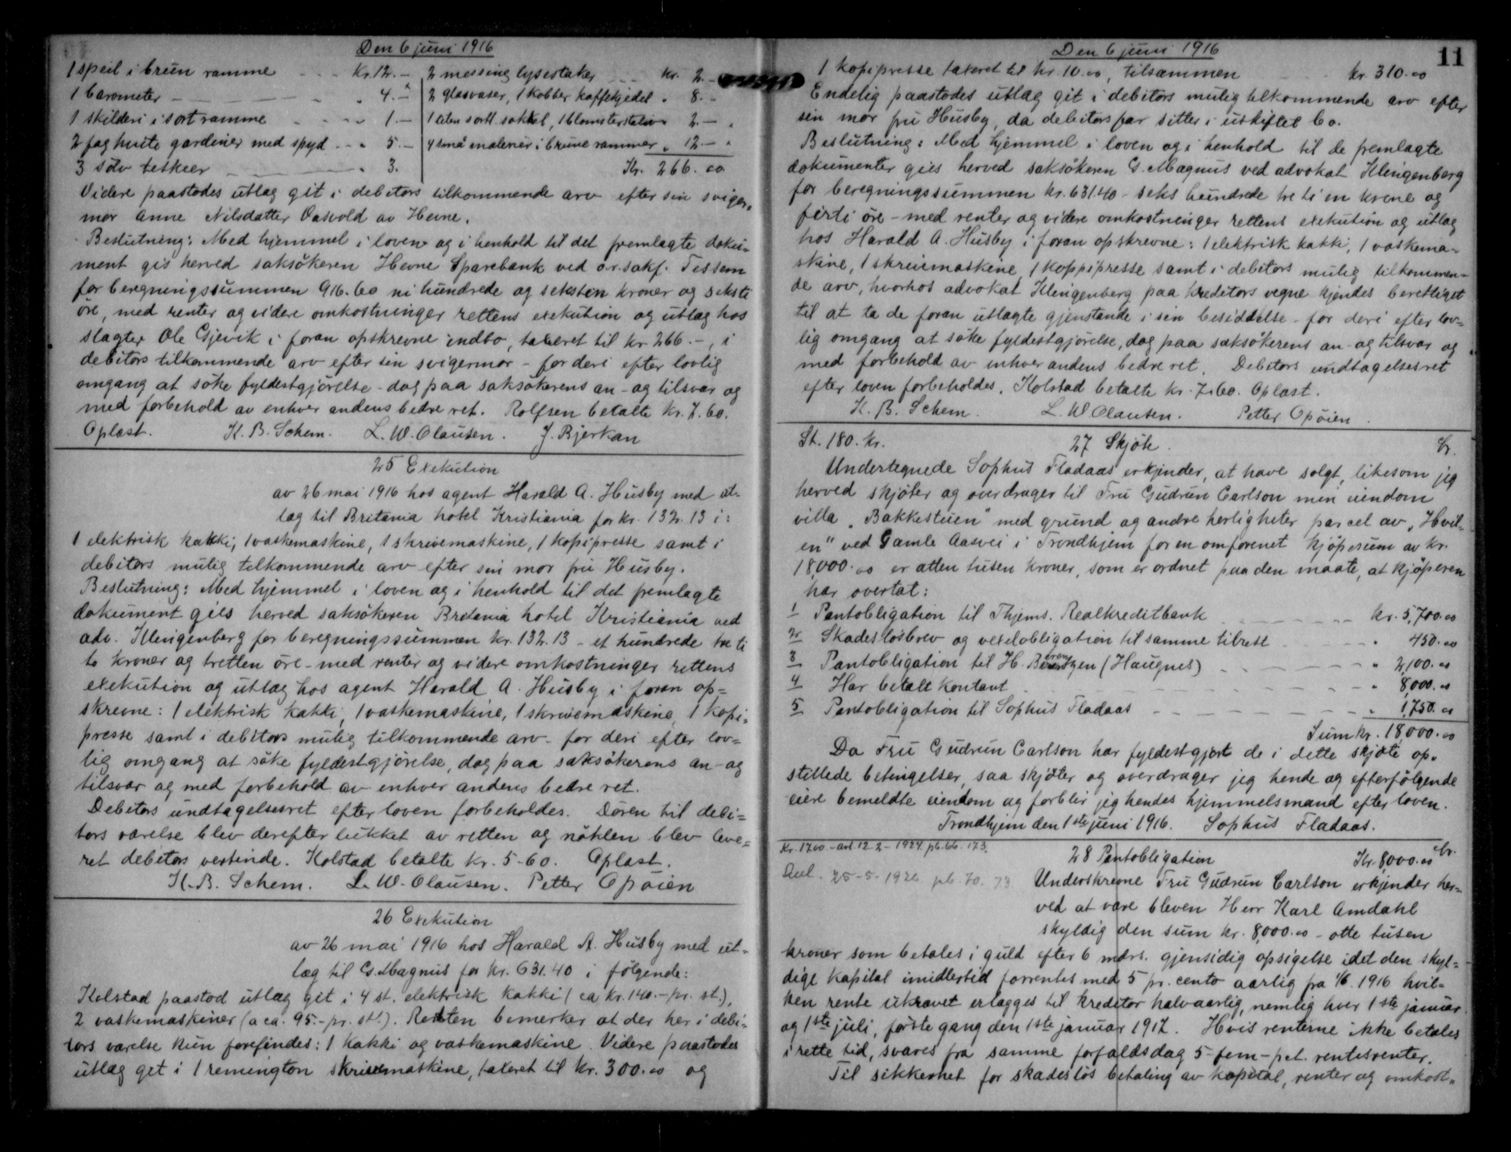 Den 6 juni 1916
1 speil i brun ramme Kr. 12.- 2 messing lysestaker kr. 2.-
1 barometer " 4.- 2 glasvaser, 1 kobber kaffekjedel " 8.-
1 skilderi i sort ramme 1.- 1 liten sort sokkel, 1 blomsterstativ " 2.-
2 fag hvite gardiner med spyd " 5.- 4 små malerier i brune rammer " 12.-
3 sölv teskeer " 3. Kr. 266.00
Videre paastodes utlæg git i debitors tilkommende arv efter sin sviger-
mor Anne Nilsdatter Oasvold av Hevne.
Beslutning: Med hjemmel i loven og i henhold til det fremlagte doku-
ment gis herved saksökeren Hevne Sparebank ved o.r.sakf. Tessem
for beregningssummen 916.60 ni hundrede og seksten kroner og seksti
öre, med renter og videre omkostninger rettens exekution og utlæg hos
slagter Ole Gjevik i foran opskrevne indbo, taxeret til kr 266.-, i
debitors tilkommende arv efter sin svigermor - for deri efter lovlig
omgang at söke fyldestgjörelse - dog paa saksökerens an- og tilsvar og
med forbehold av enhver andens bedre ret. Rolfsen betalte Kr. 7.60.
Oplæst. K. B. Schem. L. W. Clausen. J. Bjerkan
25 Exekution
av 26 mai 1916 hos agent Harald A. Husby med ut-
læg til Britania hotel Kristiania for kr. 132.13 i:
1 elektrisk kakki, 1 vaskemaskine, 1 skrivemaskine, 1 kopipresse samt i
debitors mulig tilkommende arv efter sin mor fru Husby.
Beslutning: Med hjemmel i loven og i henhold til det fremlagte
dokument gies herved saksökeren Bretania hotel Kristiania ved
adv. Klingenberg for beregningssummen kr. 132.13 - et hundrede tre ti
to kroner og tretten öre - med renter og videre omkostninger rettens
exekution og utlæg hos agent Harald A. Husby i foran op-
skrevne: 1 elektrisk kakki, 1 vaskemaskine, 1 skrivemaskine, 1 kopi-
presse samt i debitors mulig tilkommende arv - for deri efter lov-
lig omgang at söke fyldestgjörelse, dog paa saksökerens an- og
tilsvar og med forbehold av enhver andens bedre ret.
Debitors undtagelsesret efter loven forbeholdes. Dören til debi-
tors værelse blev derefter lukket av retten og nöklen blev leve-
ret debitors vertinde. Kolstad betalte kr. 5-60. Oplæst.
K. B. Schem. L. W. Clausen. Petter Opöien
26 Exekution
av 26 mai 1916 hos Harald A. Husby med ut-
læg til G. Magnus for kr. 631.40 i følgende:
Kolstad paastod utlæg git i 4 st. elektrisk kakki (ca kr. 140.- pr. st.),
2 vaskemaskiner (a ca. 95.- pr. stk.). Retten bemerker at der her i debi-
tors værelse kun forefindes: 1 kakki og vaskemaskine. Videre paastodes
utlæg git i 1 remington skrivemaskine, taxeret til kr. 300.00 og
Den 6 juni 1916
11
1 kopipresse taxeret til kr. 10.00, tilsammen kr. 310.00
Endelig paastodes utlæg git i debitors mulig tilkommende arv efter
sin mor fru Husby, da debitors far sitter i uskiftet bo.
Beslutning: Med hjemmel i loven og i henhold til de fremlagte
dokumenter gies herved saksökeren G. Magnus ved advokat Klingenberg
for beregningssummen kr. 631.40 - seks hundrede tre ti en krone og
firti öre - med renter og videre omkostninger rettens exekution og utlæg
hos Harald A. Husby i foran opskrevne: 1 elektrisk kakki, 1 vaskema-
skine, 1 skrivemaskine, 1 koppipresse samt i debitors mulig tilkommen-
de arv, hvorhos advokat Klingenberg paa kreditors vegne kjendes berettiget
til at ta de foran utlagte gjenstande i sin besiddelse - for deri efter lov-
lig omgang at söke fyldestgjörelse, dog paa saksökerens an- og tilsvar og
med forbehold av enhver andens bedre ret. Debitors undtagelsesret
efter loven forbeholdes. Kolstad betalte kr. 7.60. Oplæst.
K. B. Schem. L. W. Clausen. Petter Opöien.
St. 180. kr. 27 Skjöte.
Undertegnede Sophus Fladaas erkjender, at have solgt, likesom jeg
herved skjøter og overdrager til Fru Gudrun Carlson min eiendom
villa "Bakkestuen" med grund og andre herligheter parcel av "Hvil-
en" ved Gamle Aasvei i Trondhjem for en omforenet kjøpesum av kr.
18000.00 er atten tusen kroner, som er ordnet paa den maate, at kjøperen
har overtat:
1 Pantobligation til Thjems. Realkreditbank kr. 5,700.00
2 Skadesløsbrev og vexelobligation til samme tilrest " 450.00
3 Pantobligation til H. (Haugnes) " 2,100.00
4 Har betalt kontant " 8,000.00
5 Pantobligation til Sophus Fladaas " 1,750.00
Sum kr. 18000.00
Da Fru Gudrun Carlson har fyldestgjort de i dette skjøte op-
stillede betingelser, saa skjøter og overdrager jeg hende og efterfølgende
eiere bemeldte eiendom og forblir jeg hendes hjemmelsmand efter loven.
Trondhjem den 1ste juni 1916. Sophus Fladaas.
Kr. 1700 - avl 12-2-1924 pb. 66. 173. 28 Pantobligation Kr. 8,000.00
Qul. 25-5-1926 pb. 70. 73 Underskrevne Fru Gudrun Carlson erkjender her-
ved at være bleven Herr Karl Amdahl
skyldig den sum kr. 8,000.00 - otte tusen
kroner som betales i guld efter 6 mdrs. gjensidig opsigelse idet den skyl-
dige kapital imidlertid forrentes med 5 pr. cento aarlig fra 1/6. 1916 hvil-
ken rente ukrævet erlægges til kreditor halvaarlig, nemlig hver 1ste januar
og 1ste juli, første gang den 1ste januar 1917. Hvis renterne ikke betales
i rette tid, svares fra samme forfaldsdag 5 - fem - pct. rentesrenter.
Til sikkerhet for skadesløs betaling av kapital, renter og omkost-